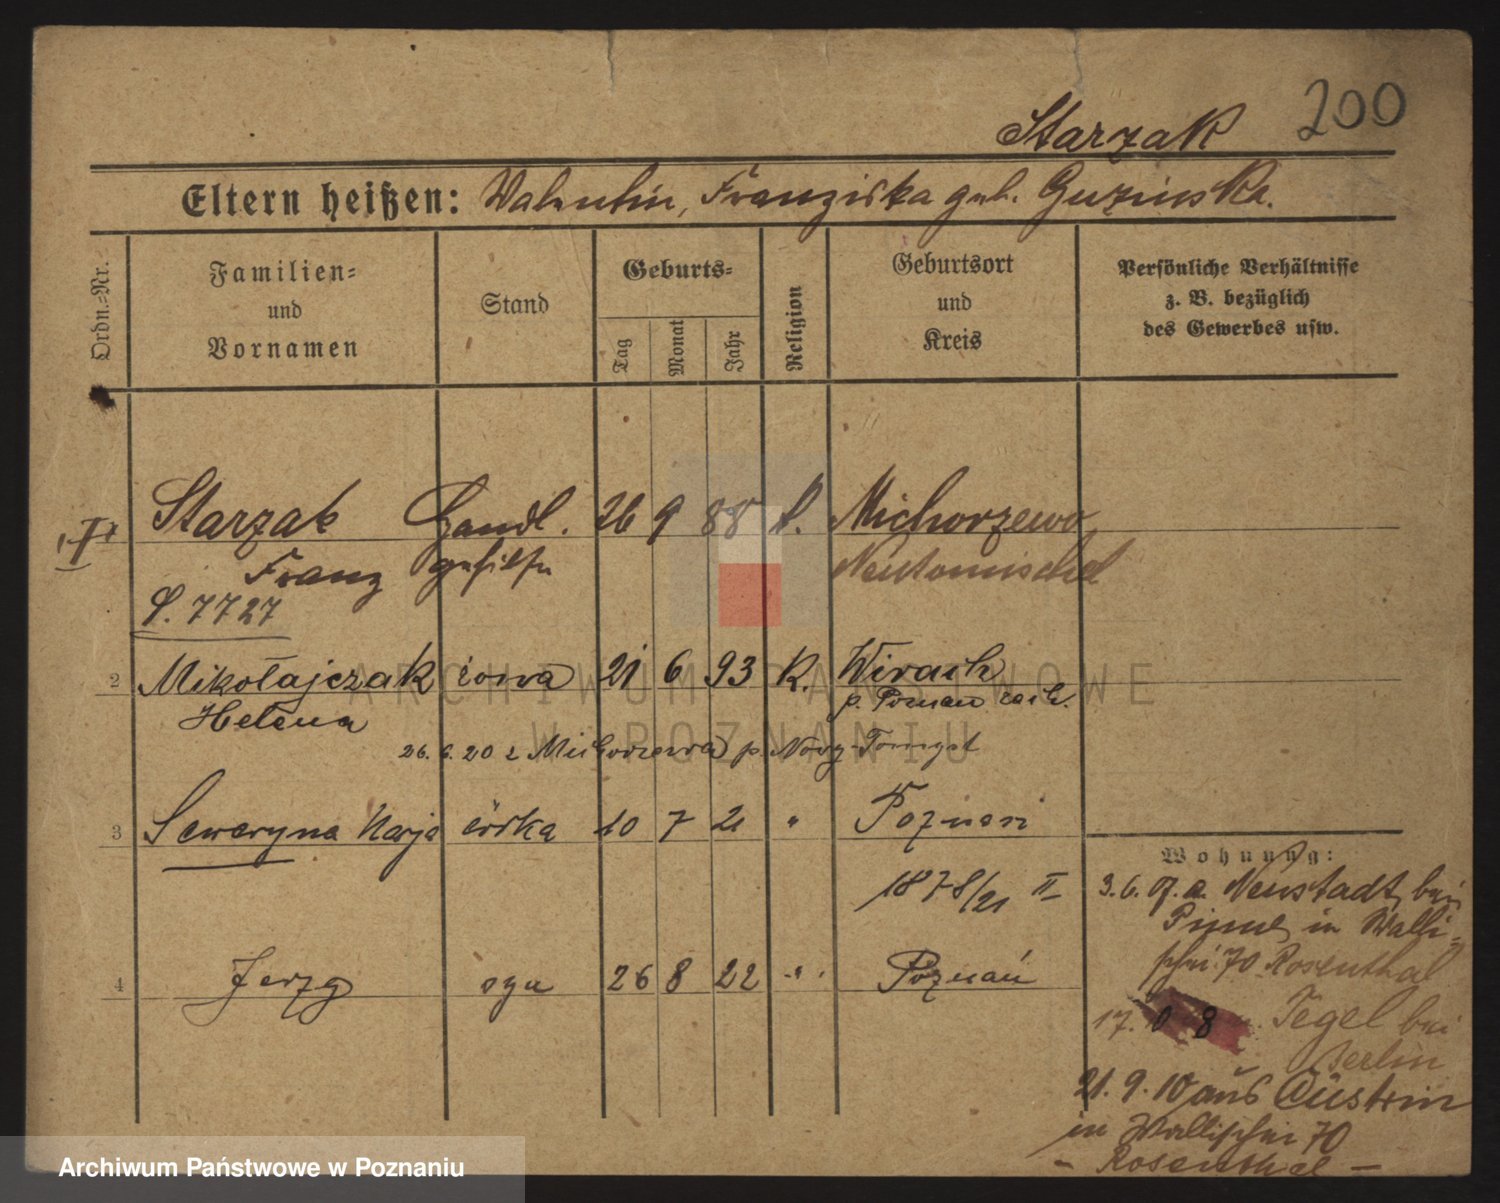 200
Starzak
Eltern heißen: Valentin, Franziska geb. Guzinska.
Ordn.-Nr.
Familien-
und
Vornamen
Stand
Geburts-
Tag
Monat
Jahr
Religion
Geburtsort
und
Kreis
Persönliche Verhältnisse
z. B. bezüglich
des Gewerbes usw.
Starzak Handl. 26 9 88 k. Michorzewo
Franz gehilfe Neutomischel
7727
2 Mikołajczak żona 21 6 93 K. Wirach
Helena p. Poznan
26. 6. 20 z Michorzewa p. Nowy-Tomyśl
3 Seweryna Marja córka 10 7 21 " Poznań
1878/21 II
4 Jerzy syn 26 8 22 " Poznań
Wohnung:
3. 6. 07. a. Neustadt bei
Pinne in Walli-
schei 70 Rosenthal
17. 8 Tegel bei
Berlin
21. 9. 10 aus Cüstrin
in Wallischei 70
- Rosenthal -
ARCHIWUM PAŃSTWOWE
W POZNANIU
Archiwum Państwowe w Poznaniu